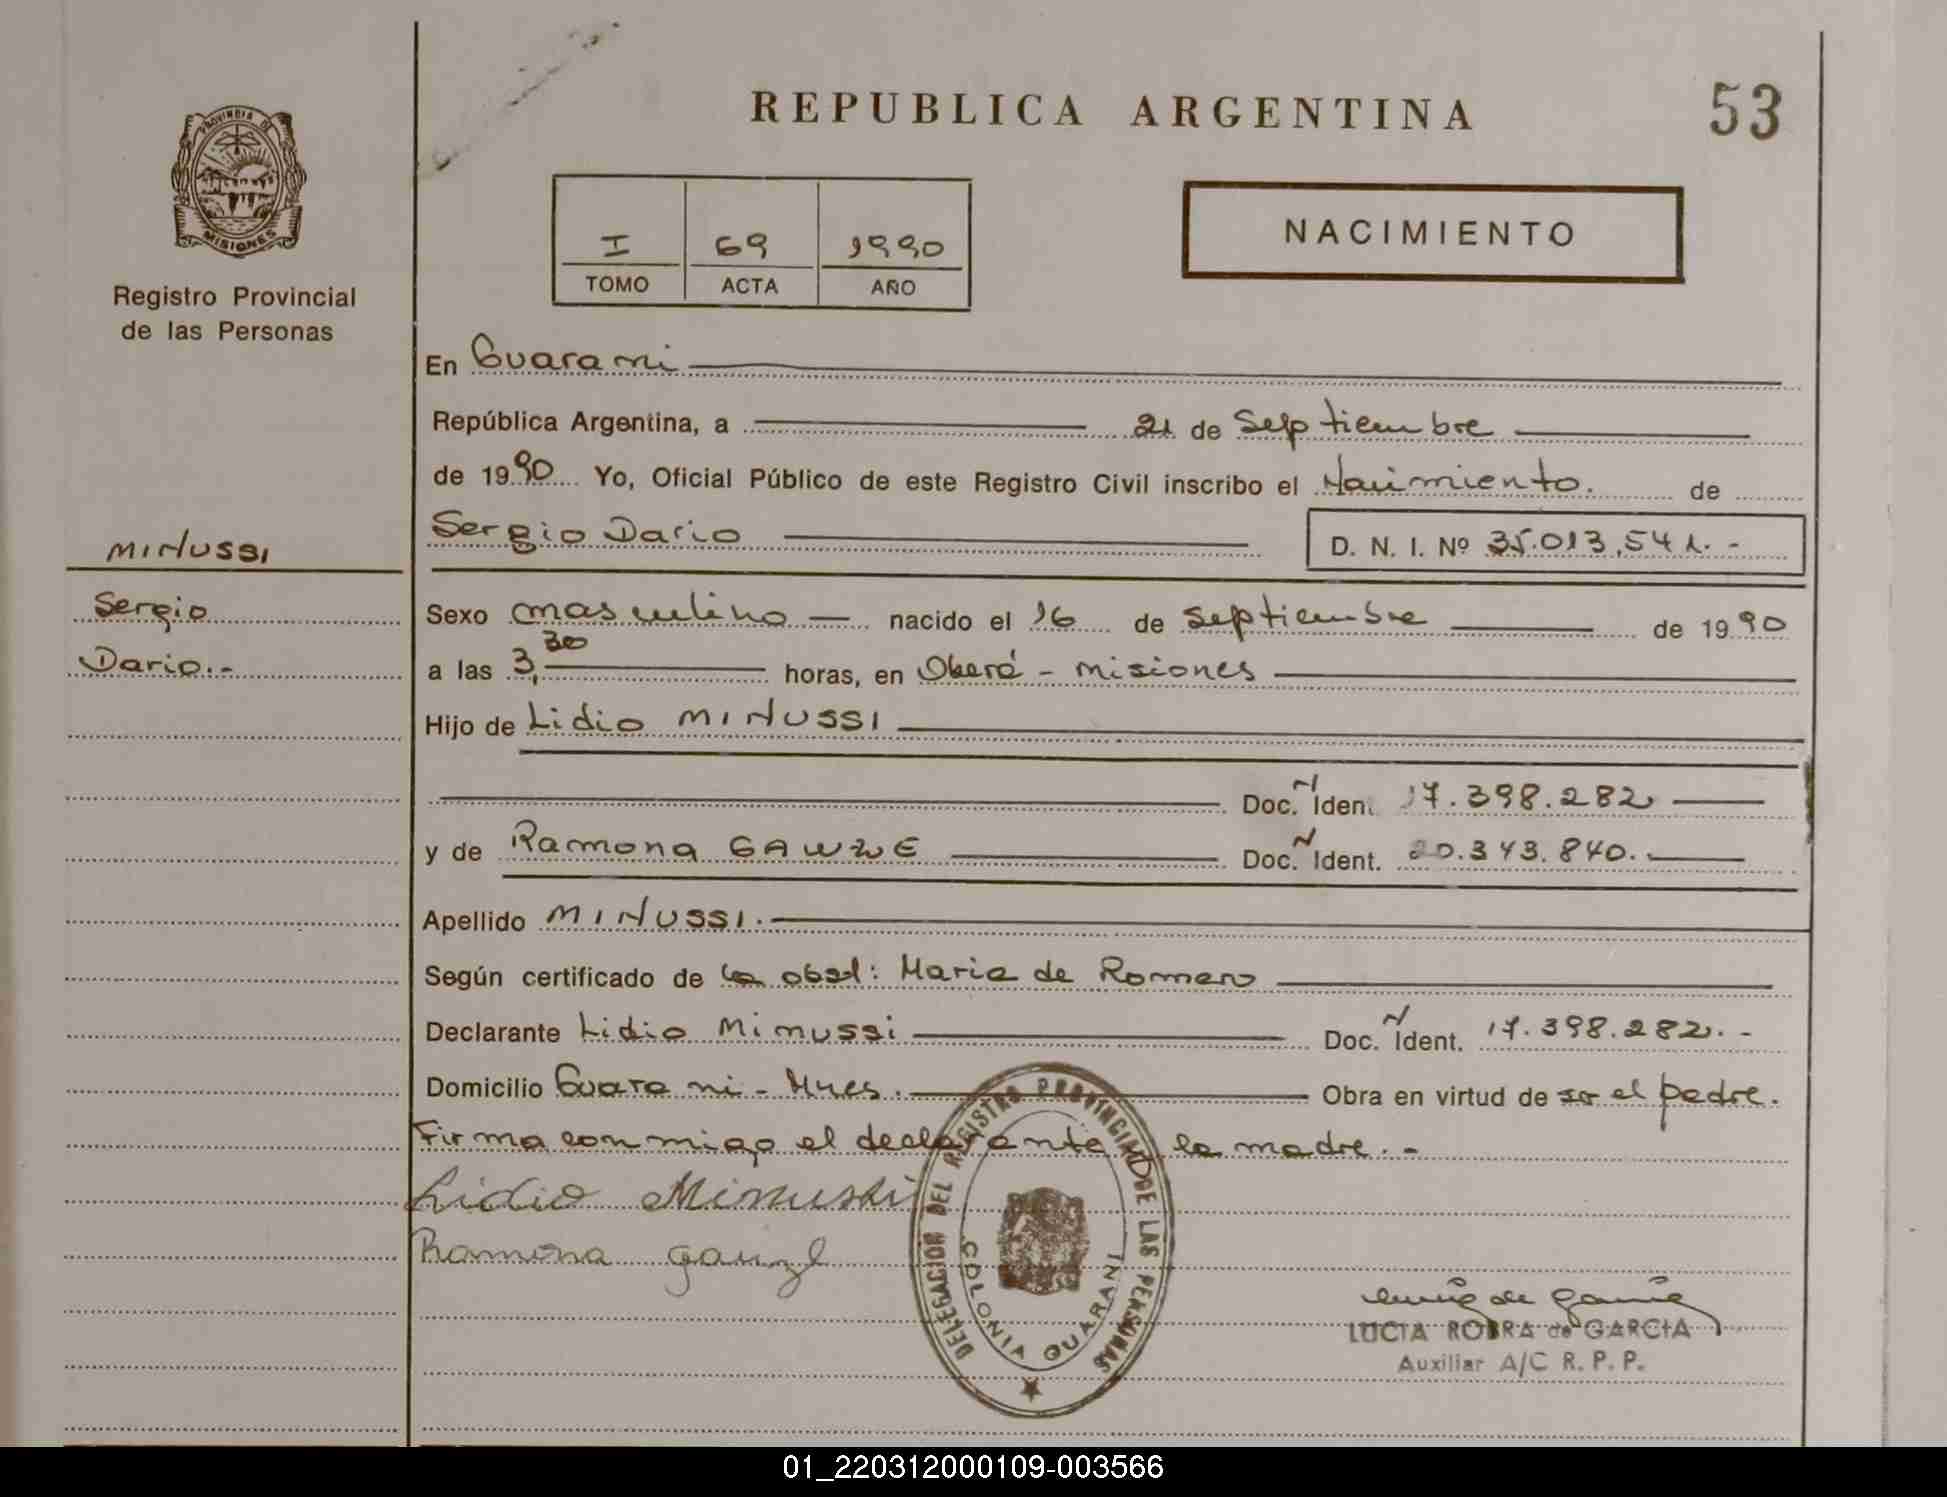 REPUBLICA ARGENTINA
53
PROVINCIA DE
MISIONES
Registro Provincial
de las Personas
I 69 1990
TOMO ACTA AÑO
NACIMIENTO
En Guarani
República Argentina, a 21 de Septiembre
de 1990 Yo, Oficial Público de este Registro Civil inscribo el Nacimiento. de
MINUSSI
Sergio Dario D. N. I. Nº 35.013.541.-
Sergio
Sexo masculino — nacido el 16 de Septiembre de 1990
Dario.-
a las 3,30 horas, en Oberá - Misiones
Hijo de Lidio MINUSSI
Doc. N Iden. 17.398.282
y de Ramona GAWZE Doc. N Ident. 20.343.840.
Apellido MINUSSI.
Según certificado de la obst: Maria de Romero
Declarante Lidio Minussi Doc. N Ident. 17.398.282.-
Domicilio Guarani - Mnes. Obra en virtud de ser el padre.
Firma conmigo el declarante la madre.-
Lidio Minussi
Ramona
DELEGACION DEL REGISTRO PROVINCIAL DE LAS PERSONAS
COLONIA GUARANI
LUCIA ROBRA de GARCIA
Auxiliar A/C R. P. P.
01_220312000109-003566